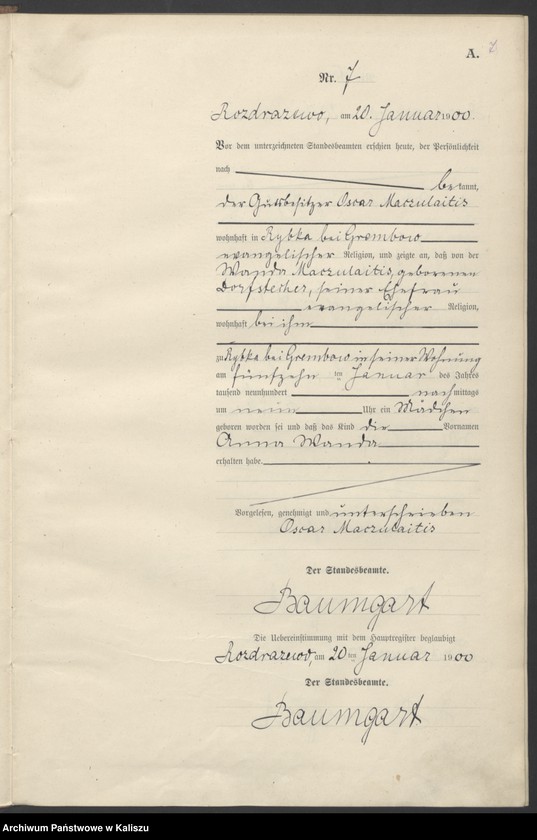 A.
Nr. 7
Rozdrazewo, am 20. Januar 1900.
Vor dem unterzeichneten Standesbeamten erschien heute, der Persönlichkeit
nach
bekannt,
der Gutsbesitzer Oscar Maczulaitis
wohnhaft in Rybka bei Grembow
evangelischer Religion, und zeigte an, daß von der
Wanda Maczulaitis, geborenen
Dorfstecher, seiner Ehefrau
evangelischer Religion,
wohnhaft bei ihm
zu Rybka bei Grembow in seiner Wohnung
am fünfzehnten Januar des Jahres
tausend neunhundert nachmittags
um neun Uhr ein Mädchen
geboren worden sei und daß das Kind die Vornamen
Anna Wanda
erhalten habe.
Vorgelesen, genehmigt und unterschrieben
Oscar Maczulaitis
Der Standesbeamte.
Baumgart
Die Uebereinstimmung mit dem Hauptregister beglaubigt
Rozdrazewo, am 20ten Januar 1900
Der Standesbeamte.
Baumgart
Archiwum Państwowe w Kaliszu